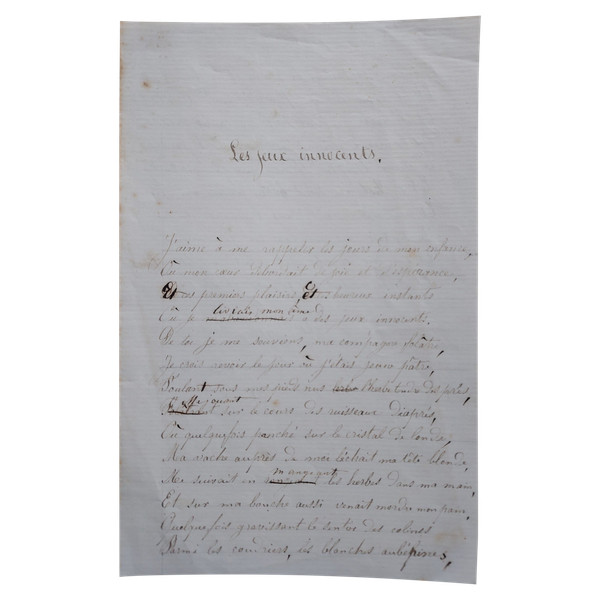 Les jeux innocents.
J'aime à me rappeler les jours de mon enfance,
Où mon cœur débordait de joie et d'espérance,
Et ces premiers plaisirs, et ces heureux instants
Où je livrais mon âme à des jeux innocents.
De toi je me souviens, ma compagne folâtre,
Je crois revoir le jour où j'étais jeune pâtre,
Foulant sous mes pieds nus l'herbe des prés,
Me jouant sur le cours des ruisseaux diaprés,
Où quelquefois panché sur le cristal de l'onde,
Ma vache auprès de moi léchait ma tête blonde,
Me suivait en mangeant les herbes dans ma main,
Et sur ma bouche aussi venait mordre mon pain.
Quelquefois gravissant le sentier des colines
Parmi les coudriers, les blanches aubépines,